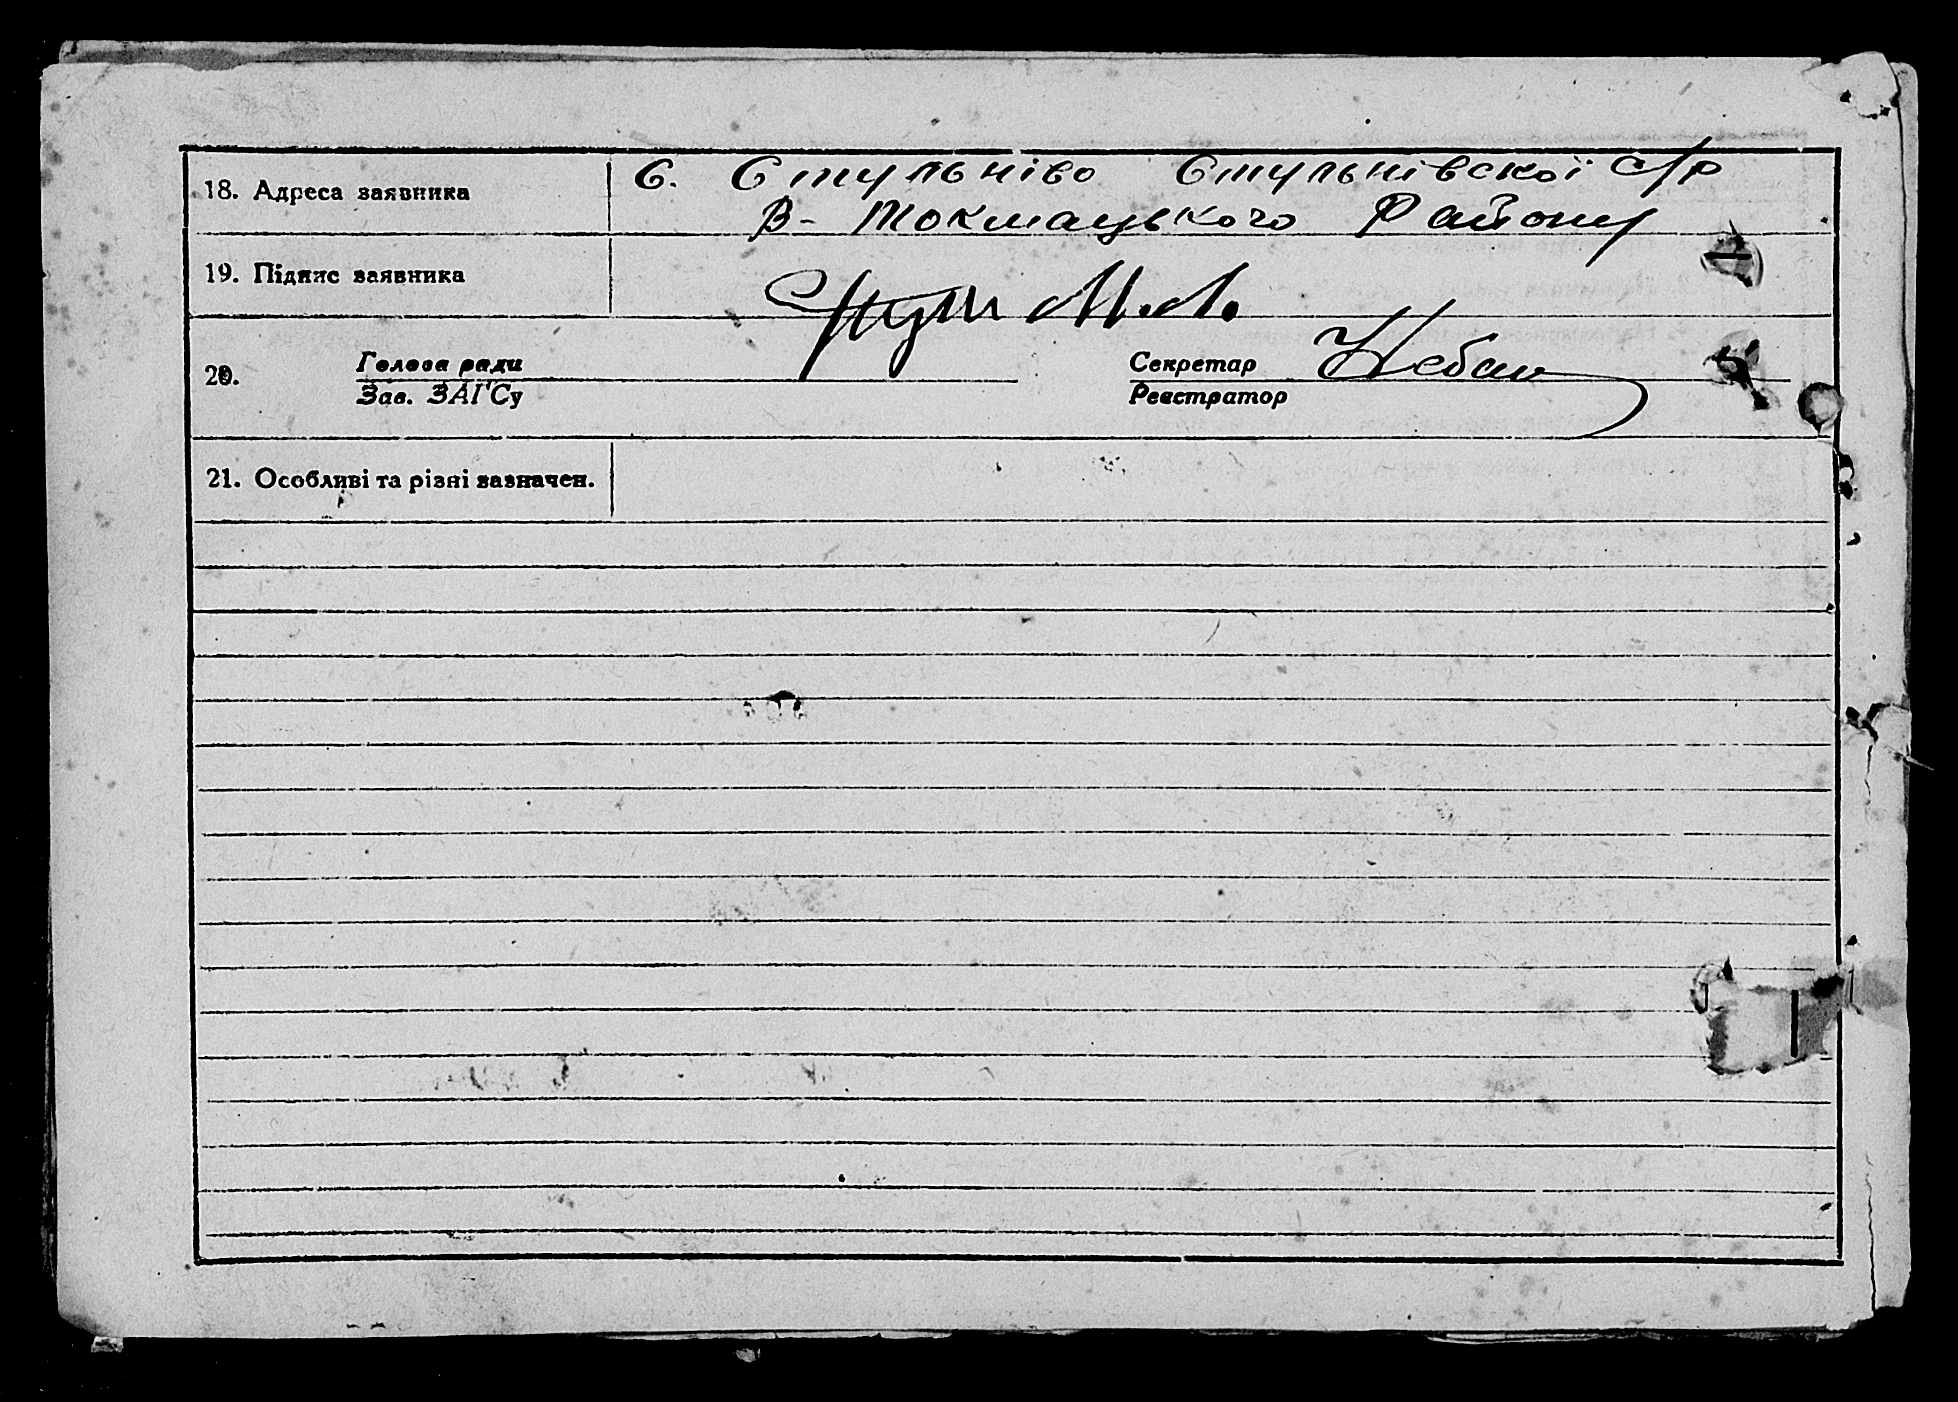 18. Адреса заявника
С. Стульніво Стульнівскої с/р
В-Токмацького Району
19. Підпис заявника
М.Л.
20. Голова ради
Зав. ЗАГСу
Секретар
Реєстратор
21. Особливі та різні зазначен.